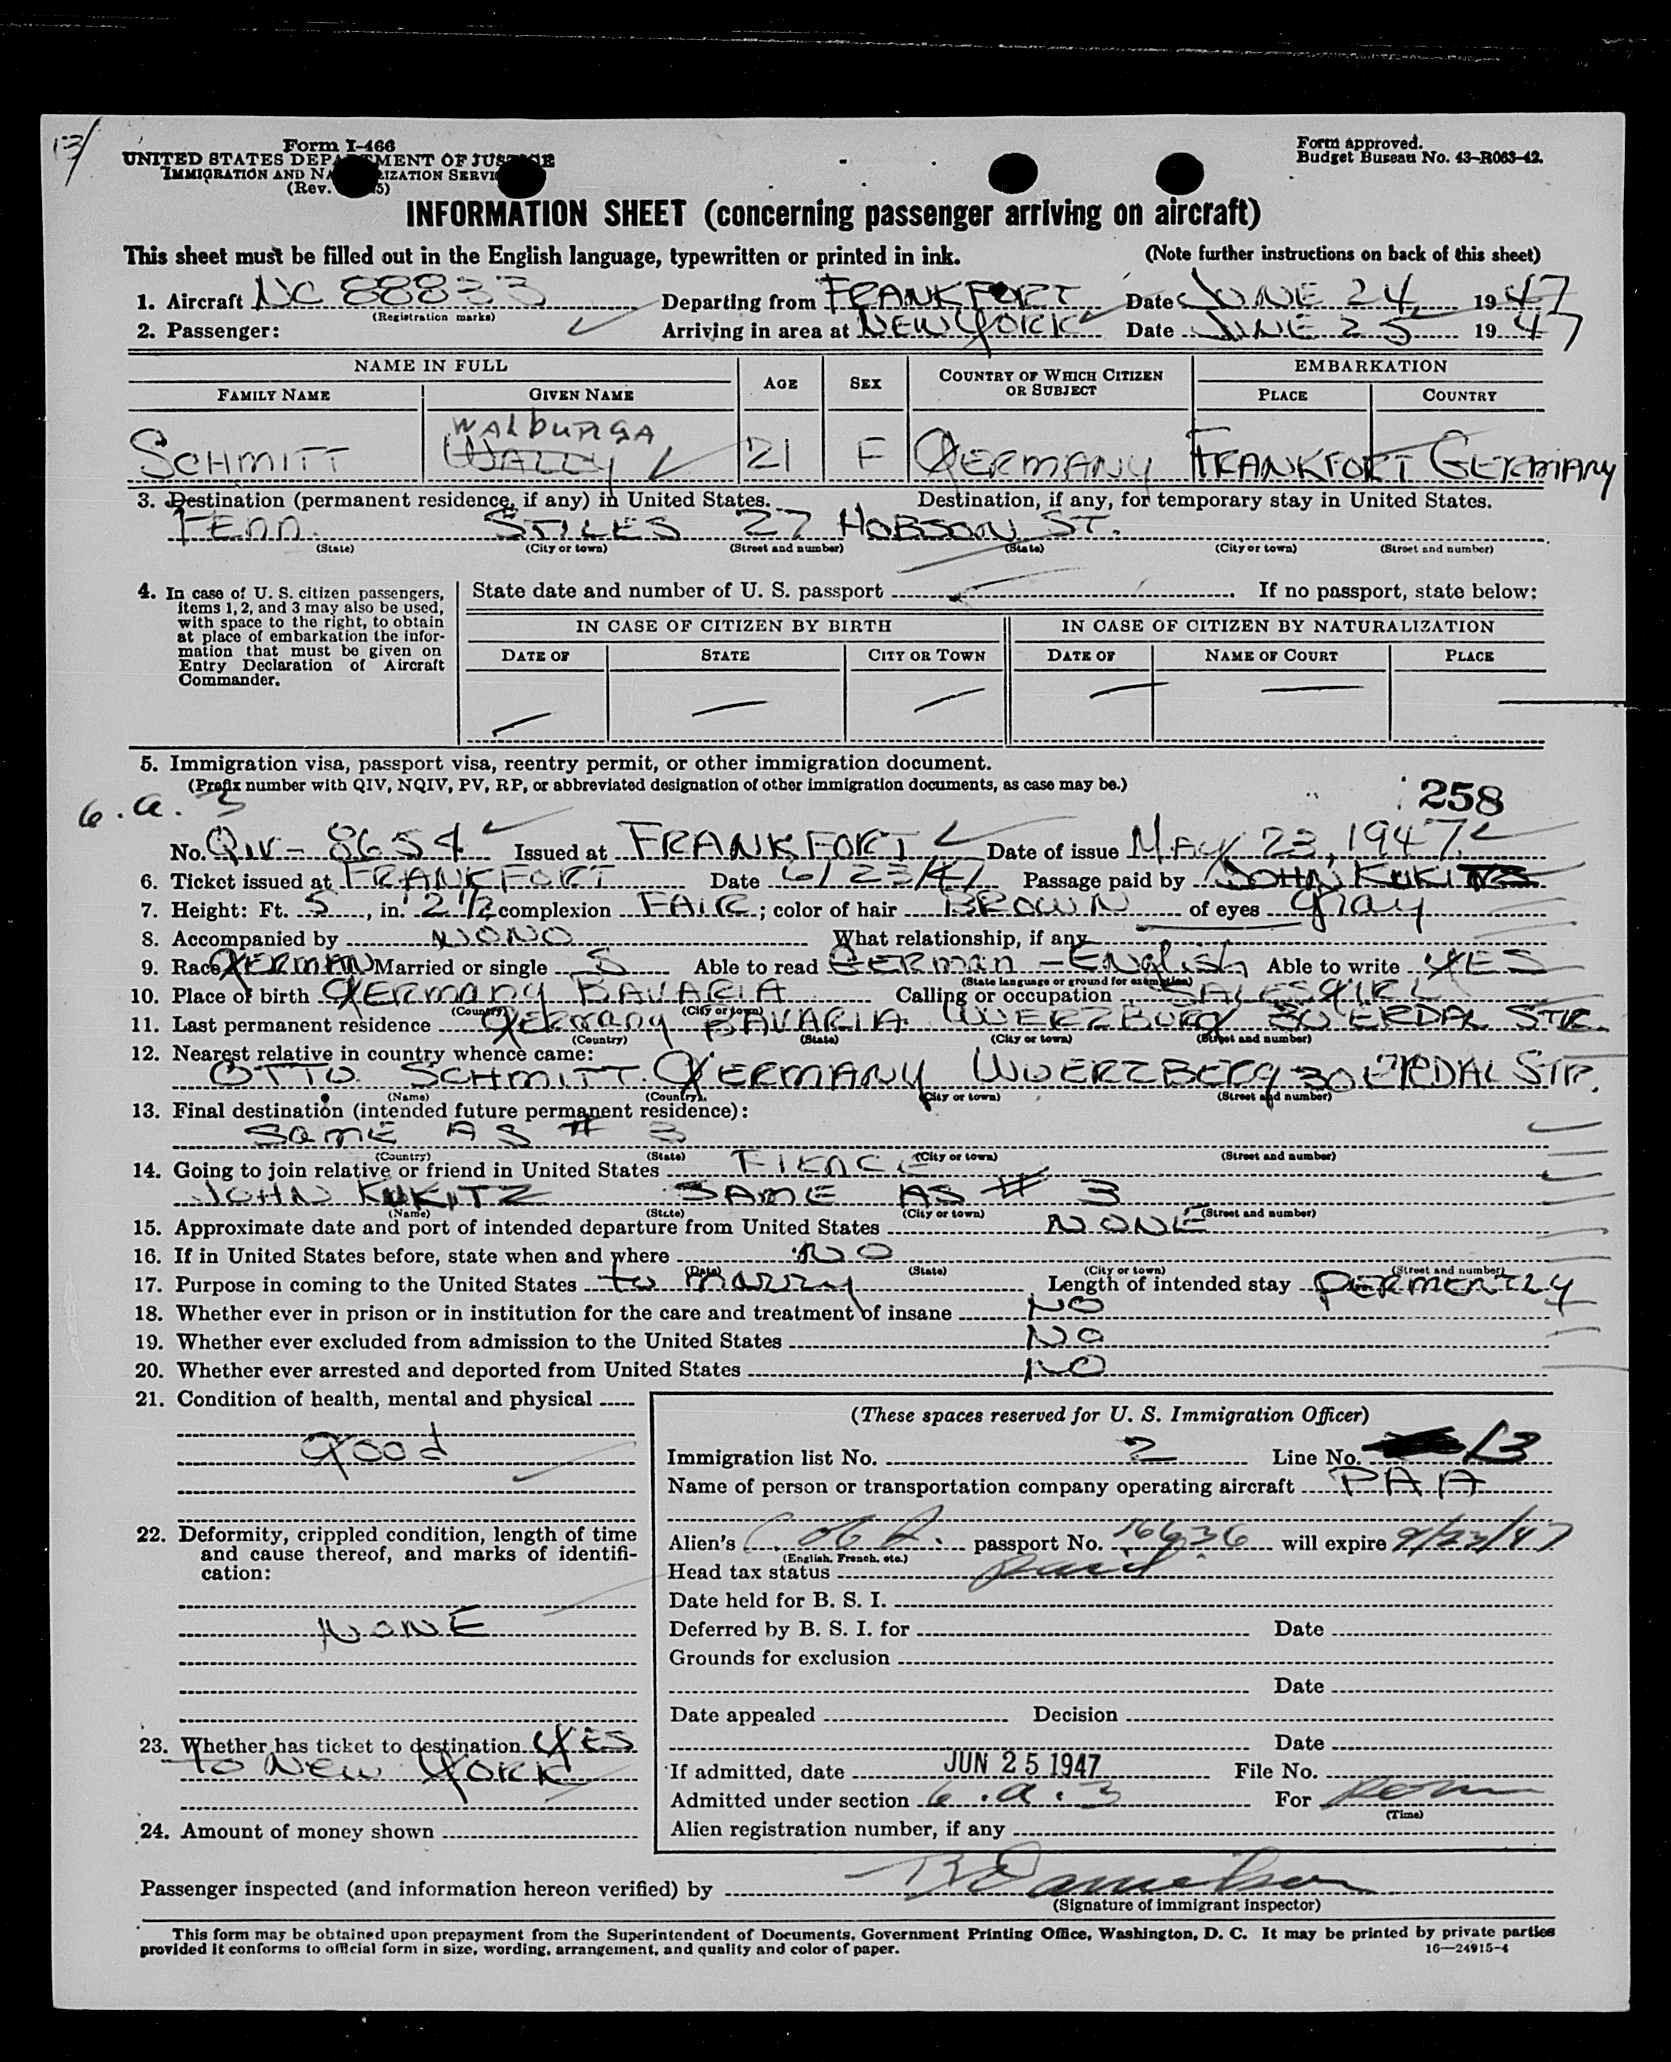 13/
Form I-466
Form approved.
UNITED STATES DEPARTMENT OF JUSTICE
Budget Bureau No. 43-R063-42.
IMMIGRATION AND NATURALIZATION SERVICE
(Rev. 5)
INFORMATION SHEET (concerning passenger arriving on aircraft)
This sheet must be filled out in the English language, typewritten or printed in ink. (Note further instructions on back of this sheet)
1. Aircraft NC 88833 Departing from FRANKFORT Date JUNE 24 1947
(Registration marks)
2. Passenger: Arriving in area at NEW YORK Date JUNE 25 1947
NAME IN FULL AGE SEX COUNTRY OF WHICH CITIZEN OR SUBJECT EMBARKATION
FAMILY NAME GIVEN NAME PLACE COUNTRY
WALBURGA
SCHMITT WALLY 21 F GERMANY FRANKFORT GERMANY
3. Destination (permanent residence, if any) in United States. Destination, if any, for temporary stay in United States.
PENN. STILES 27 HOBSON ST.
(State) (City or town) (Street and number) (State) (City or town) (Street and number)
4. In case of U. S. citizen passengers, items 1, 2, and 3 may also be used, with space to the right, to obtain at place of embarkation the information that must be given on Entry Declaration of Aircraft Commander.
State date and number of U. S. passport If no passport, state below:
IN CASE OF CITIZEN BY BIRTH IN CASE OF CITIZEN BY NATURALIZATION
DATE OF STATE CITY OR TOWN DATE OF NAME OF COURT PLACE
5. Immigration visa, passport visa, reentry permit, or other immigration document.
(Prefix number with QIV, NQIV, PV, RP, or abbreviated designation of other immigration documents, as case may be.)
6.a.3 258
No. QIV-8654 Issued at FRANKFORT Date of issue MAY 23, 1947
6. Ticket issued at FRANKFORT Date 6/23/47 Passage paid by JOHN KUKITZ
7. Height: Ft. 5, in. 2 1/2 complexion FAIR; color of hair BROWN of eyes gray
8. Accompanied by NONO What relationship, if any
9. Race GERMAN Married or single S Able to read GERMAN - ENGLISH Able to write YES
(State language or ground for exemption)
10. Place of birth GERMANY BAVARIA Calling or occupation SALESGIRL
(Country) (City or town)
11. Last permanent residence GERMANY BAVARIA WUERZBURG 30 ERDAL STR.
(Country) (State) (City or town) (Street and number)
12. Nearest relative in country whence came:
OTTO SCHMITT. GERMANY WUERZBERG 30 ERDAL STR.
(Name) (Country) (City or town) (Street and number)
13. Final destination (intended future permanent residence):
SAME AS # 3
(Country) (State) (City or town) (Street and number)
14. Going to join relative or friend in United States FIENCE
JOHN KUKITZ SAME AS # 3
(Name) (State) (City or town) (Street and number)
15. Approximate date and port of intended departure from United States NONE
16. If in United States before, state when and where NO
(Date) (State) (City or town) (Street and number)
17. Purpose in coming to the United States to MARRY Length of intended stay PERMENTLY
18. Whether ever in prison or in institution for the care and treatment of insane NO
19. Whether ever excluded from admission to the United States NO
20. Whether ever arrested and deported from United States NO
21. Condition of health, mental and physical
good
22. Deformity, crippled condition, length of time and cause thereof, and marks of identification:
NONE
23. Whether has ticket to destination YES
TO NEW YORK
24. Amount of money shown
(These spaces reserved for U. S. Immigration Officer)
Immigration list No. 2 Line No. 13
Name of person or transportation company operating aircraft PAA
Alien's passport No. 16636 will expire 9/23/47
(English, French, etc.)
Head tax status paid
Date held for B. S. I.
Deferred by B. S. I. for Date
Grounds for exclusion
Date
Date appealed Decision
Date
If admitted, date JUN 25 1947 File No.
Admitted under section 6.a.3 For
(Time)
Alien registration number, if any
Passenger inspected (and information hereon verified) by
(Signature of immigrant inspector)
This form may be obtained upon prepayment from the Superintendent of Documents, Government Printing Office, Washington, D. C. It may be printed by private parties
provided it conforms to official form in size, wording, arrangement, and quality and color of paper. 16—24915-4